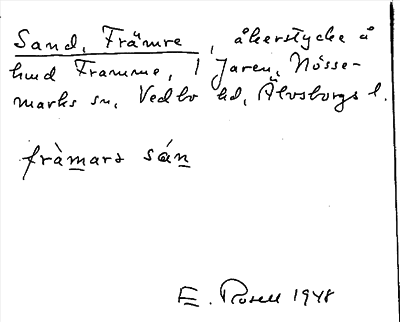 Sand, Främre, åkerstycke å
hmd Framme, 1 Jaren, Nösse-
marks sn, Vedbo hd, Älvsborgs l.
fràmarə sán
E. Rosell 1948